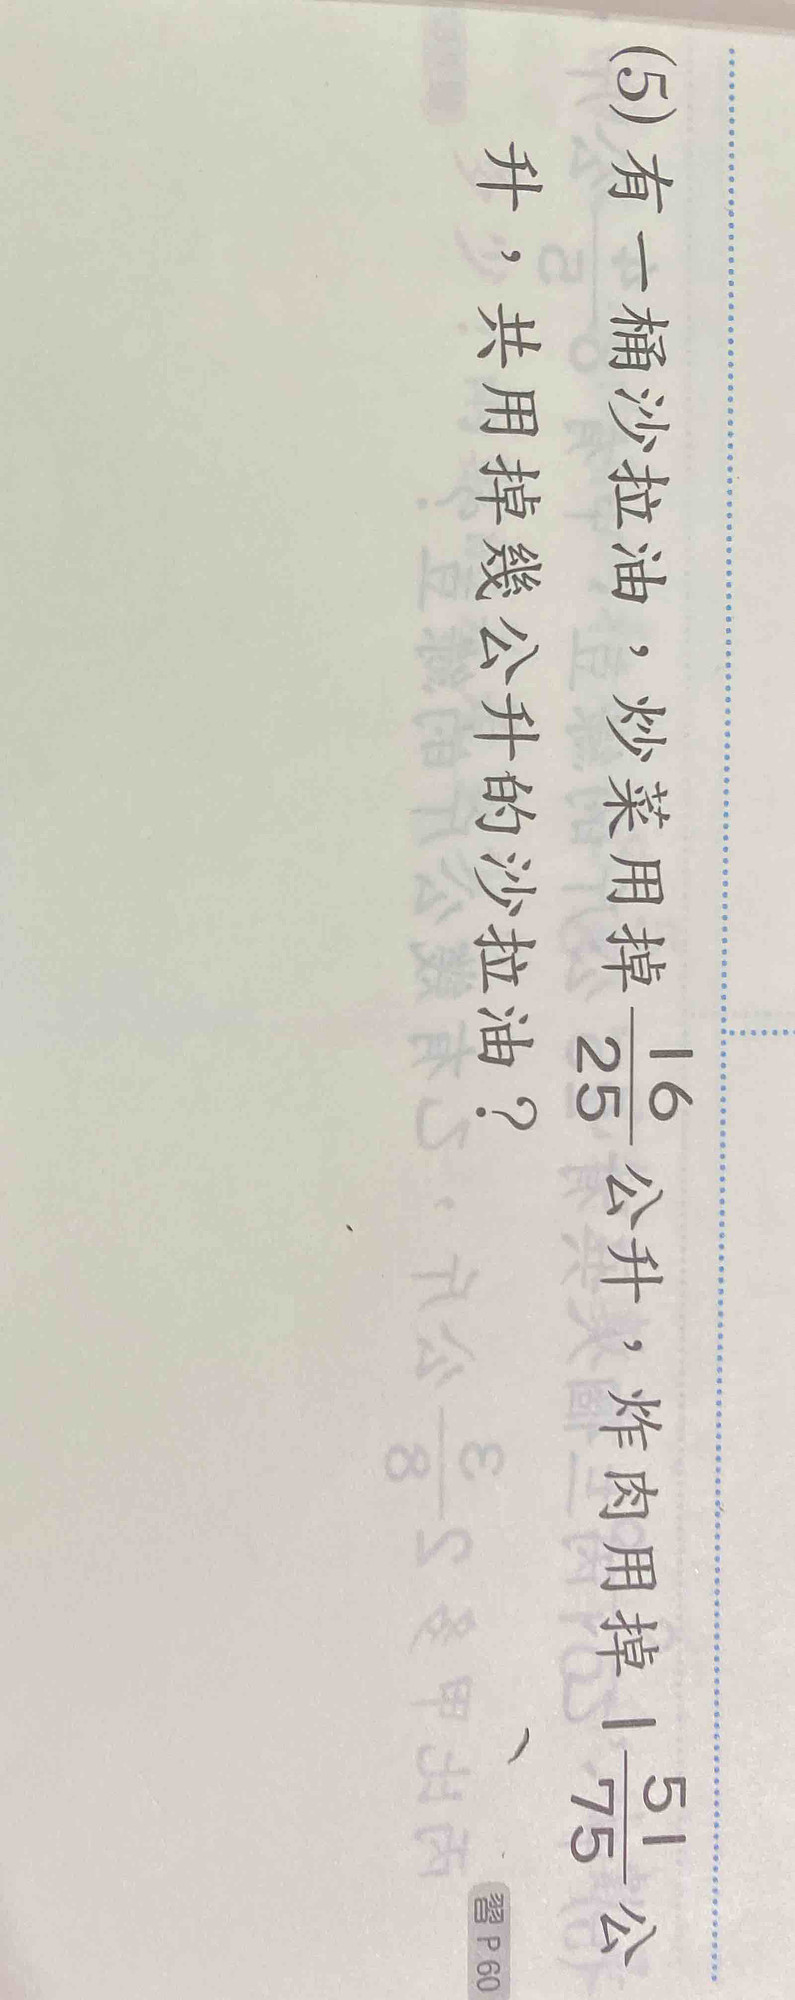 (5) 有一桶沙拉油，炒菜用掉 16/25 公升，炸肉用掉 1 51/75 公
升，共用掉幾公升的沙拉油？
習 P.60